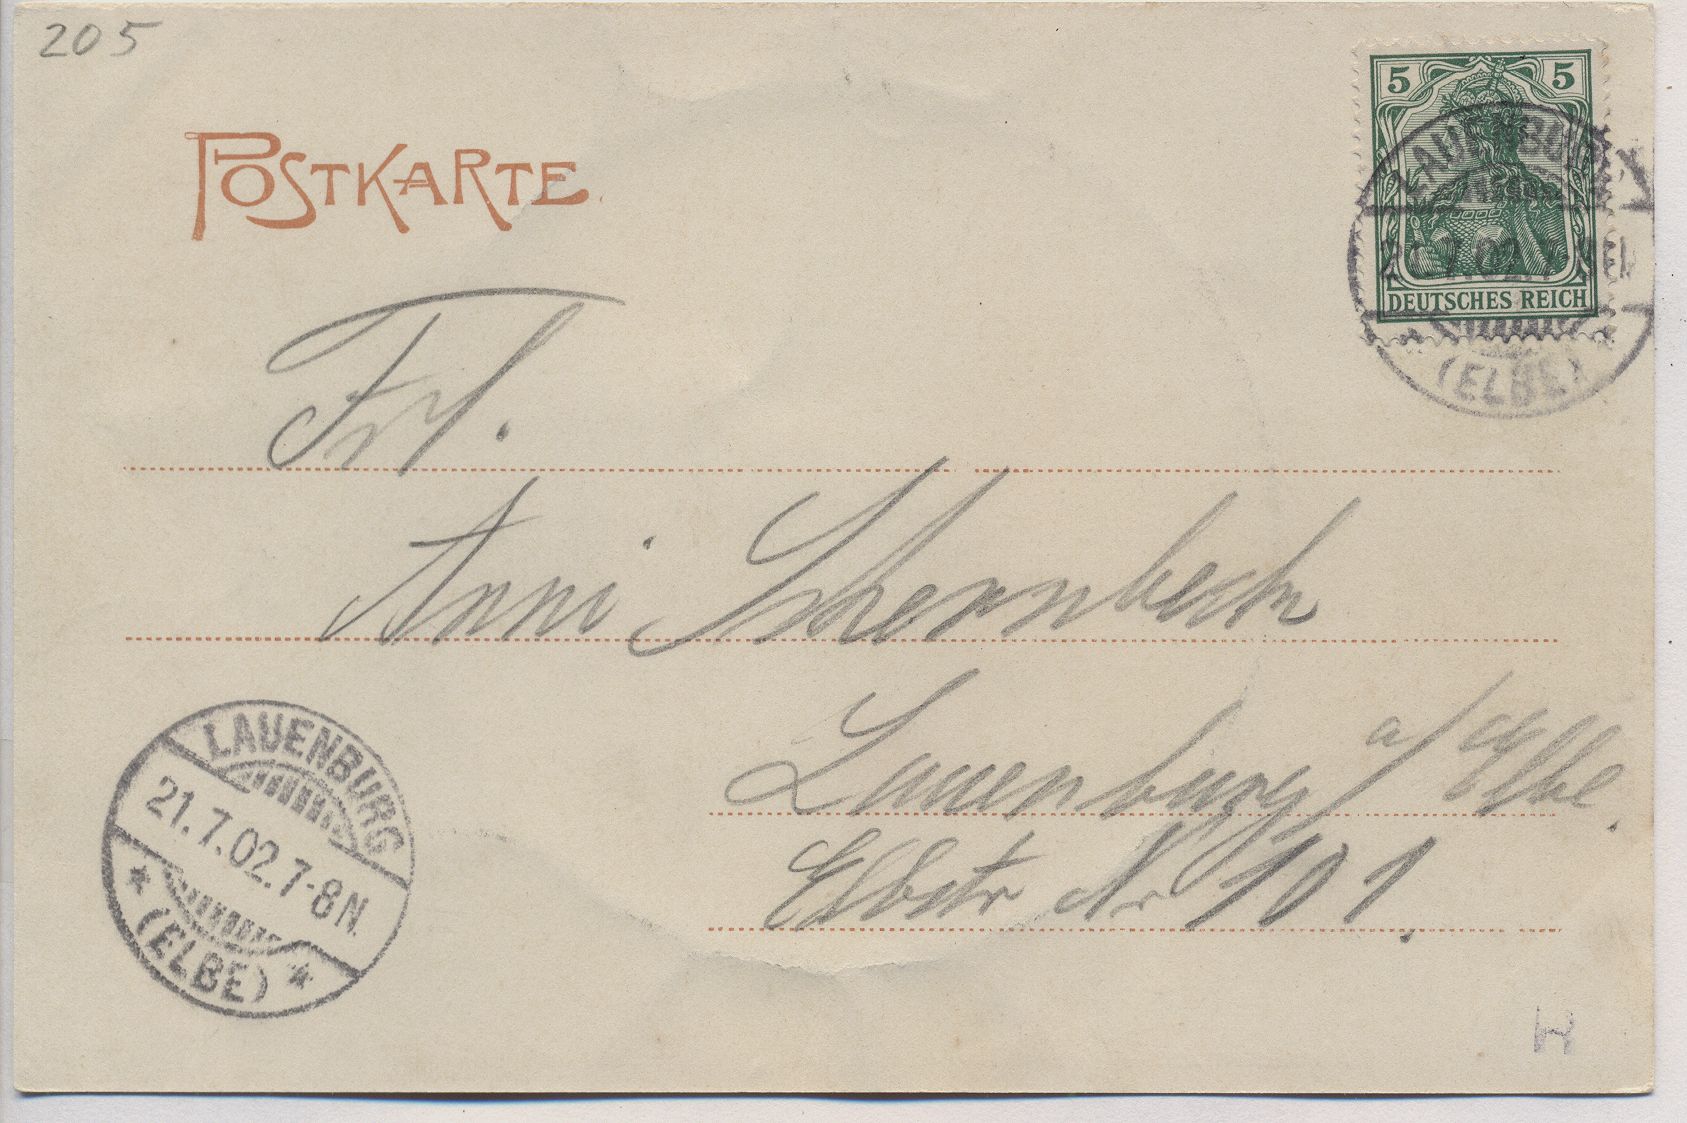 205
POSTKARTE.
5 5
DEUTSCHES REICH
LAUENBURG
21.7.02.7-8N
(ELBE)
Frl.
Anni Schernbeck
Lauenburg a/Elbe.
Elbstr Nr 101.
LAUENBURG
21.7.02.7-8N.
* (ELBE) *